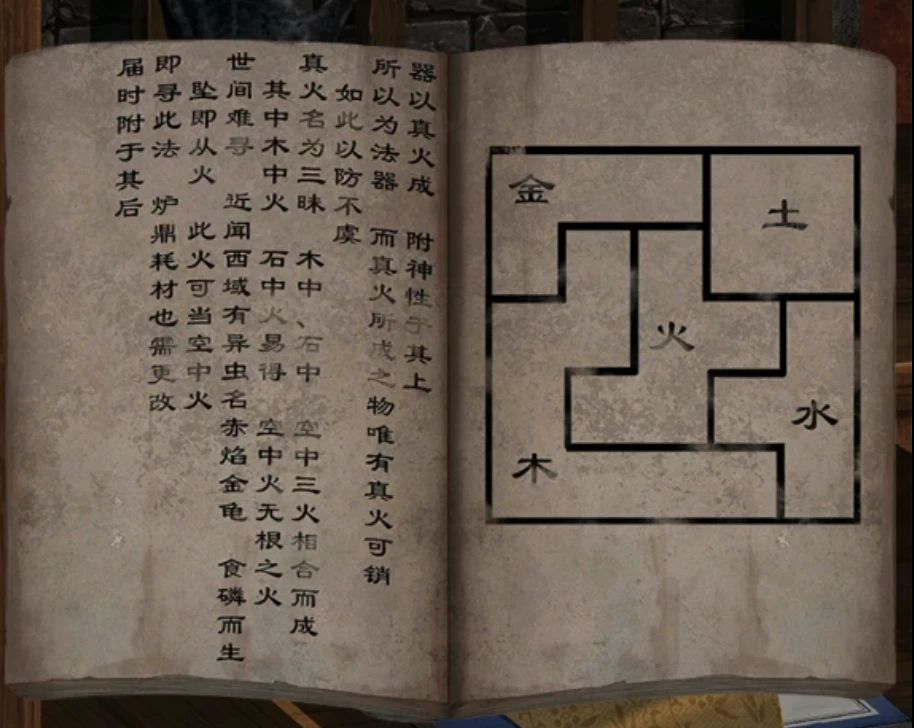 器以真火成　附神性于其上
所以为法器　而真火所成之物唯有真火可销
如此以防不虞
真火名为三昧　木中、石中　空中三火相合而成
其中木中火　石中火易得　空中火无根之火
世间难寻　近闻西域有异虫名赤焰金龟　食磷而生
坠即从火　此火可当空中火
即寻此法　炉鼎耗材也需更改
届时附于其后
金
土
火
水
木